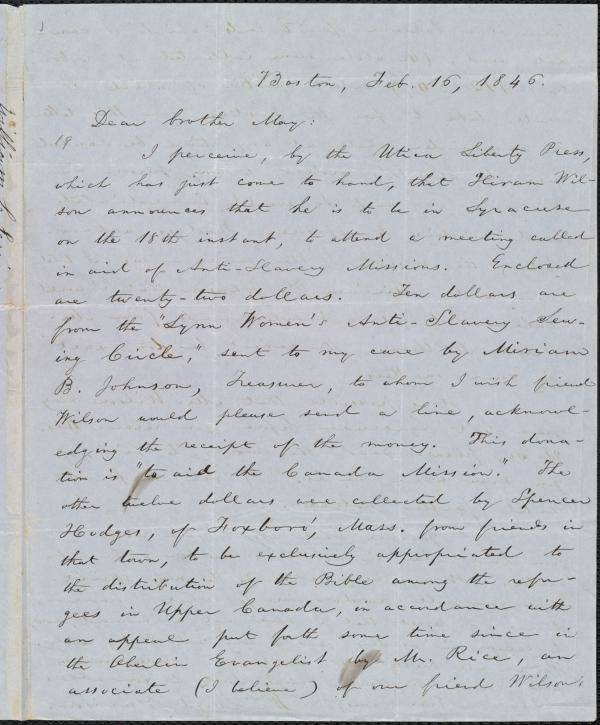 Boston, Feb. 16, 1846.
Dear brother May:
19
I perceive, by the Utica Liberty Press,
which has just come to hand, that Hiram Wil-
son announces that he is to be in Syracuse
on the 18th instant, to attend a meeting called
in aid of Anti-Slavery Missions. Enclosed
are twenty-two dollars. Ten dollars are
from the "Lynn Women's Anti-Slavery Sew-
ing Circle," sent to my care by Miriam
B. Johnson, Treasurer, to whom I wish friend
Wilson would please send a line, acknowl-
edging the receipt of the money. This dona-
tion is "to aid the Canada Mission." The
other twelve dollars are collected by Spencer
Hodges, of Foxboro', Mass. from friends in
that town, to be exclusively appropriated to
the distribution of the Bible among the refu-
gees in Upper Canada, in accordance with
an appeal put forth some time since in
the Oberlin Evangelist by Mr. Rice, an
associate (I believe) of our friend Wilson.